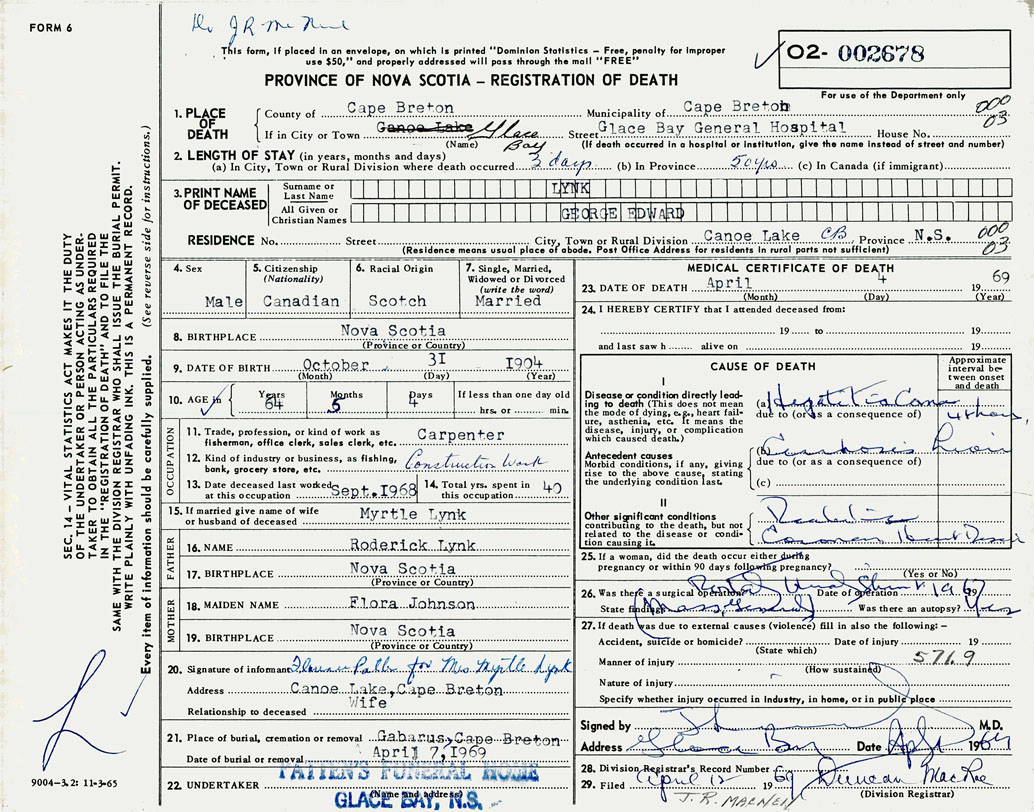 FORM 6
Dr J R Mc Neil
This form, if placed in an envelope, on which is printed "Dominion Statistics – Free, penalty for improper
use $50," and properly addressed will pass through the mail "FREE"
PROVINCE OF NOVA SCOTIA – REGISTRATION OF DEATH
02- 002678
For use of the Department only
000
03
1. PLACE OF DEATH
County of Cape Breton Municipality of Cape Breton
If in City or Town Canoe Lake Glace Bay Street Glace Bay General Hospital House No.
(Name) (If death occurred in a hospital or institution, give the name instead of street and number)
2. LENGTH OF STAY (in years, months and days)
(a) In City, Town or Rural Division where death occurred 3 days (b) In Province 50 yrs (c) In Canada (if immigrant)
3. PRINT NAME OF DECEASED
Surname or Last Name LYNK
All Given or Christian Names GEORGE EDWARD
RESIDENCE No. Street City, Town or Rural Division Canoe Lake CB Province N.S. 000
03
(Residence means usual place of abode, Post Office Address for residents in rural parts not sufficient)
4. Sex Male
5. Citizenship (Nationality) Canadian
6. Racial Origin Scotch
7. Single, Married, Widowed or Divorced (write the word) Married
8. BIRTHPLACE Nova Scotia
(Province or Country)
9. DATE OF BIRTH October 31 1904
(Month) (Day) (Year)
10. AGE in Years 64 Months 5 Days 4 If less than one day old
hrs. or min.
OCCUPATION
11. Trade, profession or kind of work as fisherman, office clerk, sales clerk, etc. Carpenter
12. Kind of industry or business, as fishing, bank, grocery store, etc. Construction Work
13. Date deceased last worked at this occupation Sept. 1968
14. Total yrs. spent in this occupation 40
15. If married give name of wife or husband of deceased Myrtle Lynk
FATHER
16. NAME Roderick Lynk
17. BIRTHPLACE Nova Scotia
(Province or Country)
MOTHER
18. MAIDEN NAME Flora Johnson
19. BIRTHPLACE Nova Scotia
(Province or Country)
20. Signature of informant for Mrs Myrtle Lynk
Address Canoe Lake, Cape Breton
Relationship to deceased Wife
21. Place of burial, cremation or removal Gabarus, Cape Breton
Date of burial or removal April 7, 1969
22. UNDERTAKER PATTEN'S FUNERAL HOME
(Name and address)
GLACE BAY, N.S.
MEDICAL CERTIFICATE OF DEATH
23. DATE OF DEATH April 4 19 69
(Month) (Day) (Year)
24. I HEREBY CERTIFY that I attended deceased from:
19 to 19
and last saw h alive on 19
CAUSE OF DEATH
Approximate interval between onset and death
I
Disease or condition directly leading to death (This does not mean the mode of dying, e.g., heart failure, asthenia, etc. It means the disease, injury, or complication which caused death.)
(a) Hepatic Coma
due to (or as a consequence of)
Antecedent causes
Morbid conditions, if any, giving rise to the above cause, stating the underlying condition last.
(b) Cirrhosis
due to (or as a consequence of)
(c)
II
Other significant conditions contributing to the death, but not related to the disease or condition causing it.
Coronary Heart Disease
25. If a woman, did the death occur either during pregnancy or within 90 days following pregnancy?
(Yes or No)
26. Was there a surgical operation? Date of operation 1967
State findings (Mass. General) Was there an autopsy? Yes
27. If death was due to external causes (violence) fill in also the following: –
Accident, suicide or homicide? Date of injury 19
(State which)
Manner of injury 571.9
(How sustained)
Nature of injury
Specify whether injury occurred in industry, in home, or in public place
Signed by M.D.
Address Glace Bay Date Apr 196
28. Division Registrar's Record Number
29. Filed April 12 19 69 Duncan MacRae
(Division Registrar)
J. R. MACNEIL
SEC. 14 – VITAL STATISTICS ACT MAKES IT THE DUTY
OF THE UNDERTAKER OR PERSON ACTING AS UNDER-
TAKER TO OBTAIN ALL THE PARTICULARS REQUIRED
IN THE "REGISTRATION OF DEATH" AND TO FILE THE
SAME WITH THE DIVISION REGISTRAR WHO SHALL ISSUE THE BURIAL PERMIT.
WRITE PLAINLY WITH UNFADING INK. THIS IS A PERMANENT RECORD.
Every item of information should be carefully supplied. (See reverse side for instructions.)
9004–3.2: 11-3-65